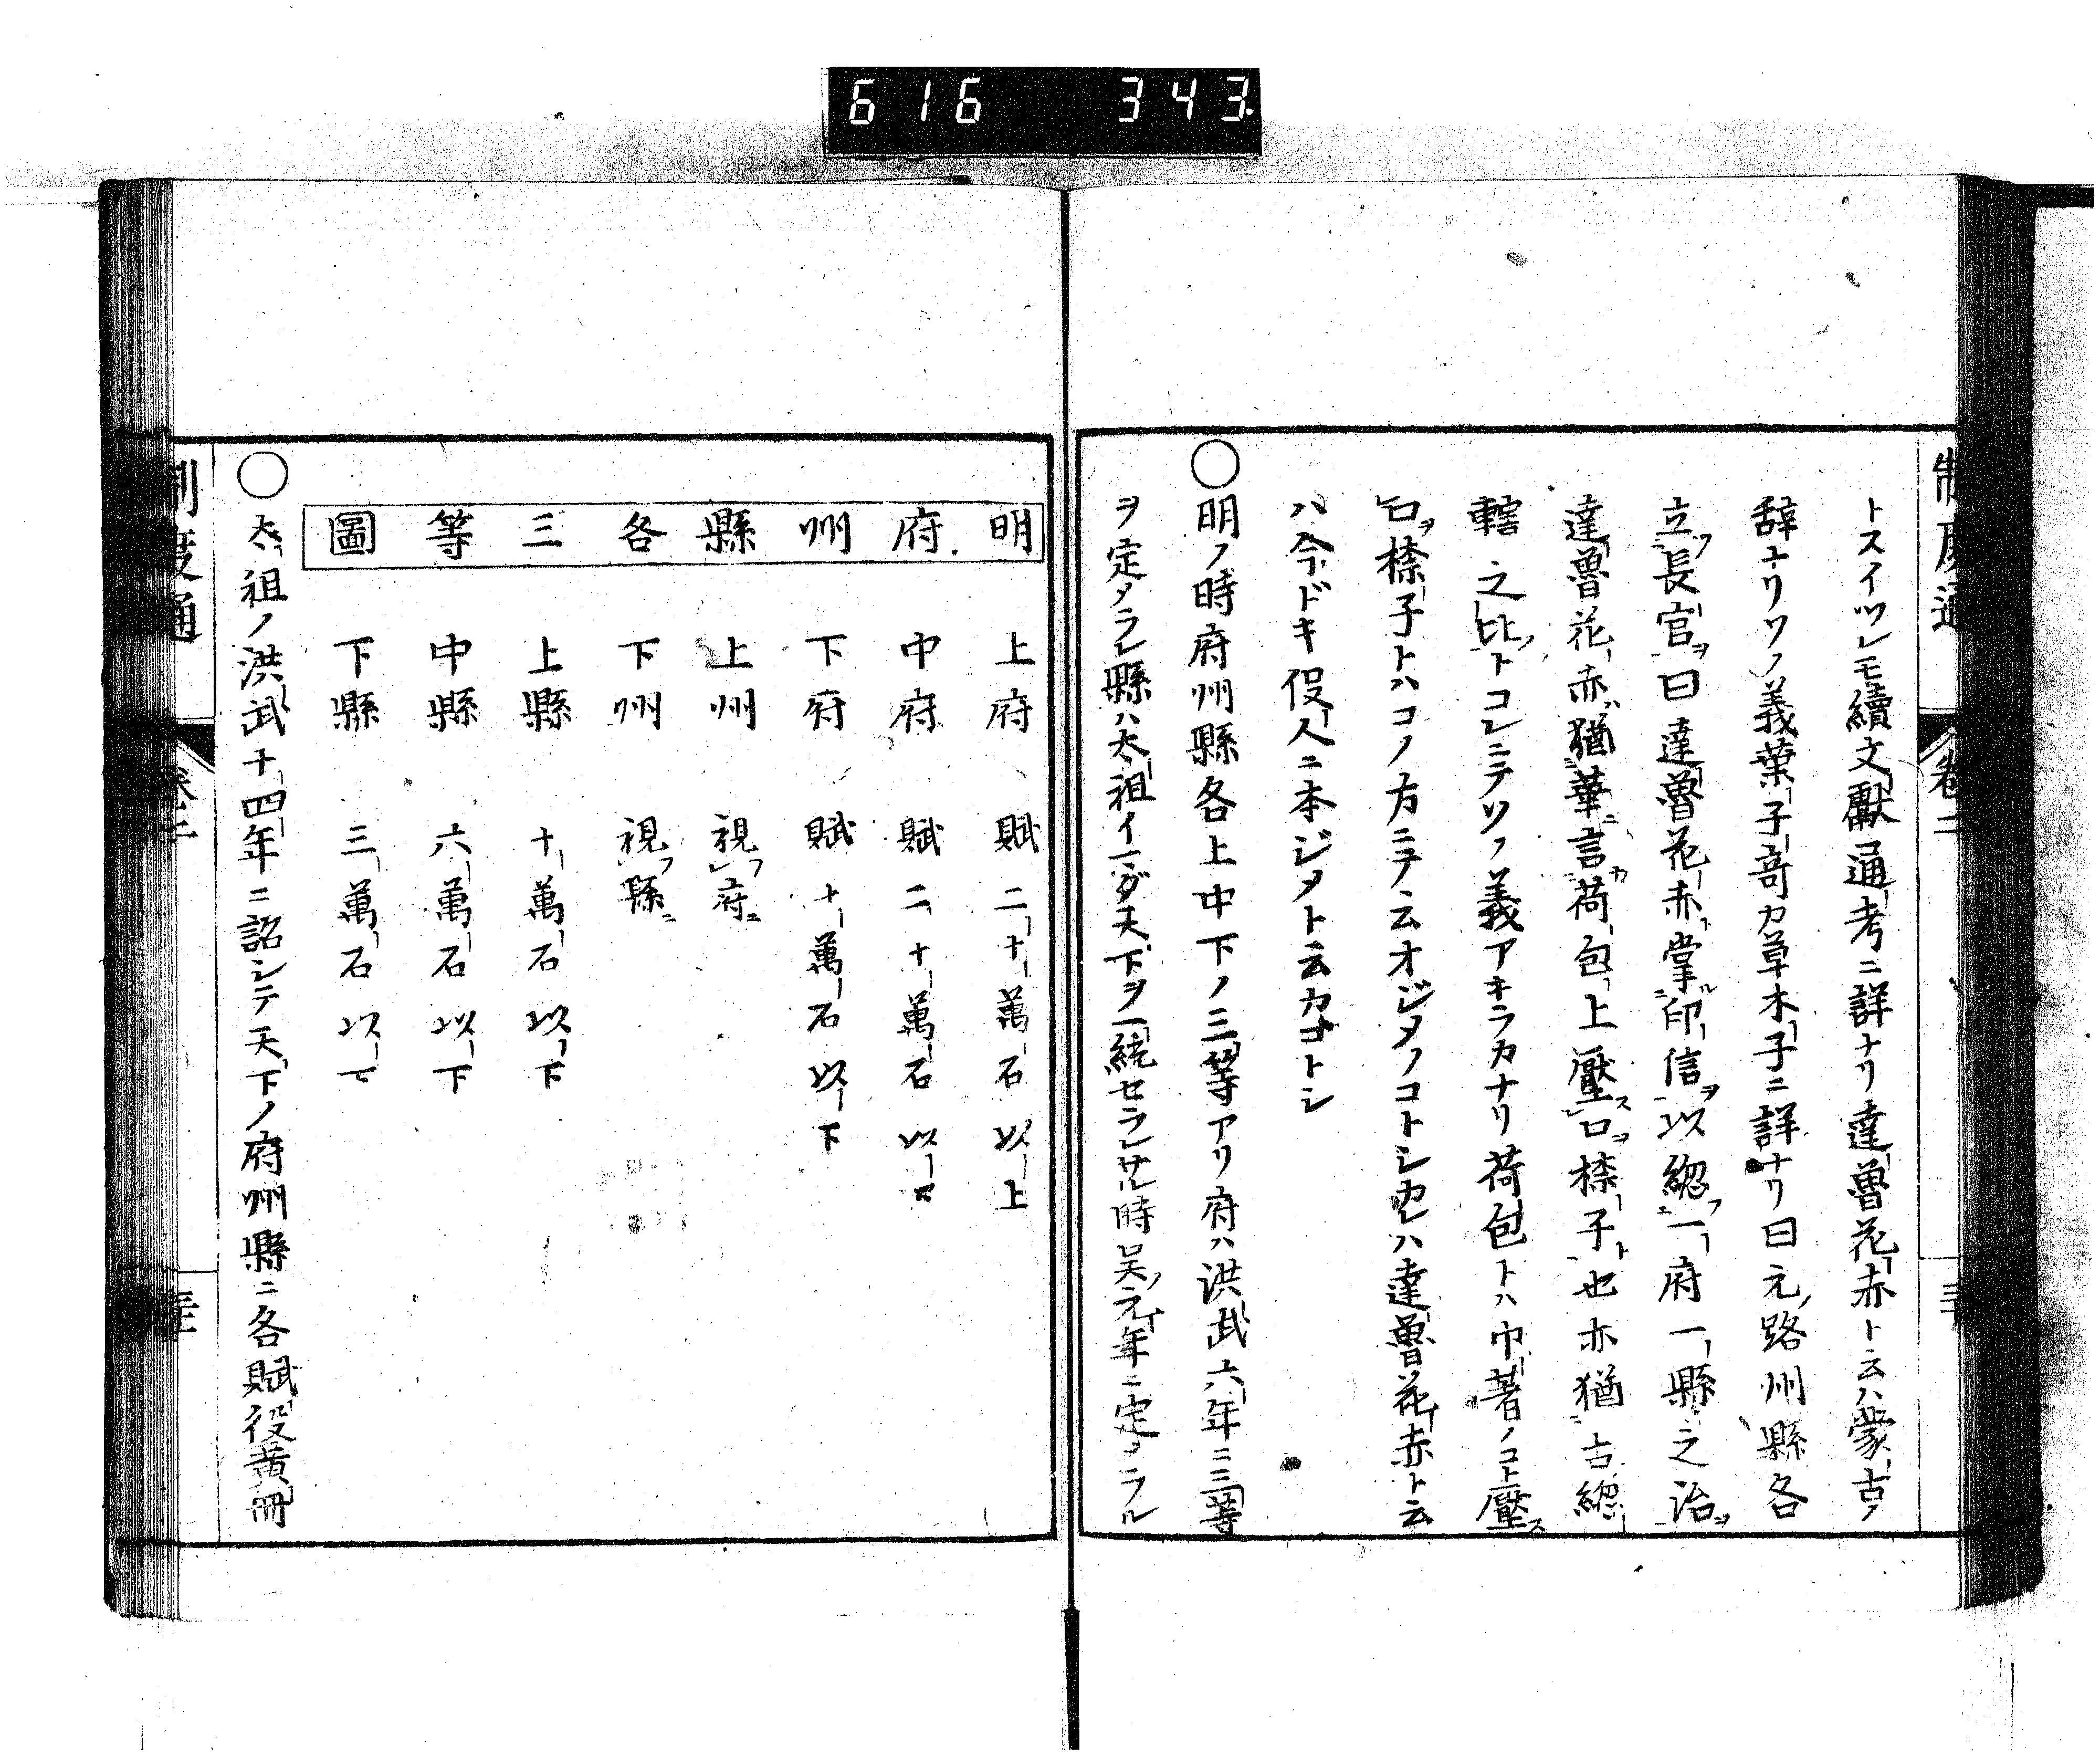 616 343
トスイツレモ續文獻通考ニ詳ナリ達魯花赤ト云ハ蒙古ノ
辞ナリソノ義葉子奇カ草木子ニ詳ナリ曰元路州縣各
立長官ヲ曰達魯花赤掌印信ヲ以總一府一縣之治ヲ
達魯花赤猶華言荷包上壓口捺子ト也亦猶古總
轄之比トコレニテソノ義アキラカナリ荷包トハ巾着ノコト壓ス
口ヲ捺子トハコノ方ニテ云オジメノコトシカレハ達魯花赤ト云
ハ今ドキ役人ニ本ジメト云カゴトシ
○明ノ時府州縣各上中下ノ三等アリ府ハ洪武六年ニ三等
ヲ定メラレ縣ハ太祖イマダ天下ヲ一統セラレサル時呉元年ニ定メラル
明府州縣各三等圖
上府 賦二十萬石以上
中府 賦二十萬石以下
下府 賦十萬石以下
上州 視府
下州 視縣
上縣 十萬石以下
中縣 六萬石以下
下縣 三萬石以下
○太祖ノ洪武十四年ニ詔シテ天下ノ府州縣ニ各賦役黄冊
制度通 卷二